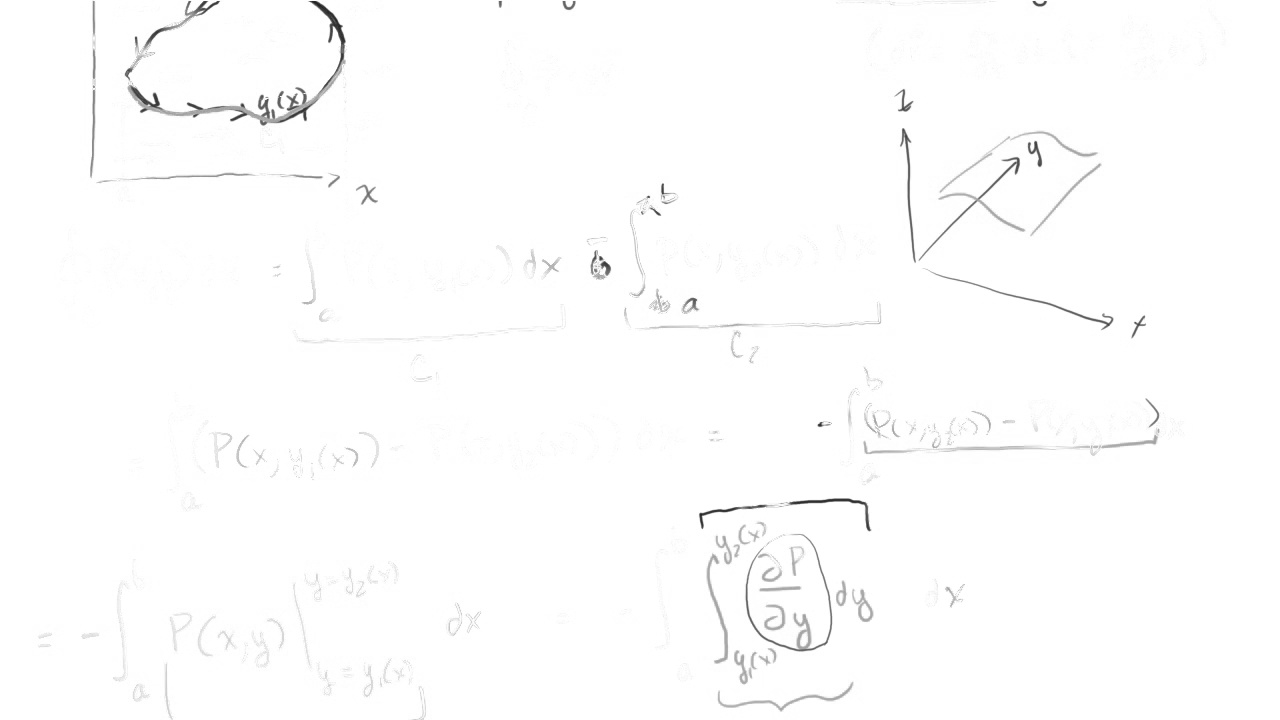 y₁(x)
x
z
y
x
= ∫ₐ dx - ∫ₐᵇ P(x, y₂(x)) dx
C₁ C₂
= ∫ₐᵇ (P(x, y₁(x)) - P(x, y₂(x))) dx = - ∫ₐᵇ (P(x, y₂(x)) - P(x, y₁(x))) dx
= - ∫ₐᵇ P(x,y) |_{y = y₁(x)}^{y = y₂(x)} dx = - ∫ₐᵇ ∫_{y₁(x)}^{y₂(x)} ∂P/∂y dy dx